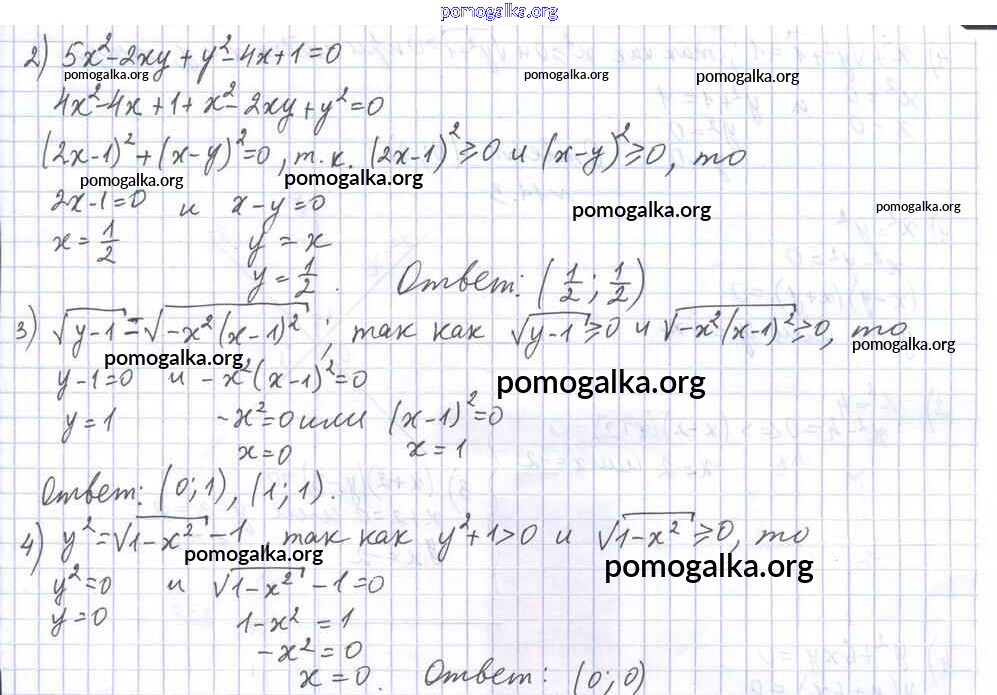 pomogalka.org
2) 5x² - 2xy + y² - 4x + 1 = 0
pomogalka.org pomogalka.org pomogalka.org
4x² - 4x + 1 + x² - 2xy + y² = 0
(2x-1)² + (x-y)² = 0, т.к. (2x-1)² ≥ 0 и (x-y)² ≥ 0, то
pomogalka.org pomogalka.org
2x-1=0 и x-y=0
pomogalka.org pomogalka.org
x = 1/2 y = x
y = 1/2. Ответ: (1/2; 1/2)
3) √(y-1) = √(-x²(x-1)²); так как √(y-1) ≥ 0 и √(-x²(x-1)²) ≥ 0, то
pomogalka.org pomogalka.org
y-1=0 и -x²(x-1)²=0
pomogalka.org
y=1 -x²=0 или (x-1)²=0
x=0 x=1
Ответ: (0;1), (1;1).
4) y² = √(1-x²) - 1, так как y²+1>0 и √(1-x²) ≥ 0, то
pomogalka.org pomogalka.org
y²=0 и √(1-x²) - 1 = 0
y=0 1-x² = 1
-x² = 0
x = 0. Ответ: (0;0)